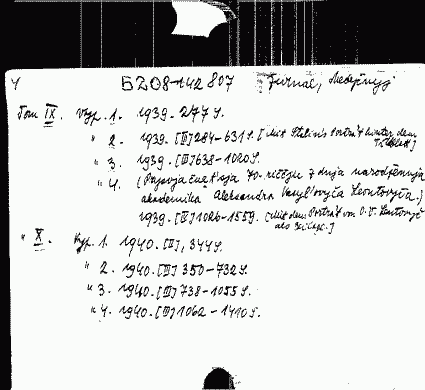 4 Б208-142 807 Žurnal, Medyčnyj
Tom IX. Vyp. 1. 1939. 277 S.
" 2. 1939. [II] 284-631 S. [Mit Stalins Porträt hinter dem Titelblatt]
" 3. 1939. [III] 638-1020 S.
" 4. (Prysvjačuet'sja 70-riččju z dnja narodžennja
akademika Aleksandra Vasyl'ovyča Leontovyča.)
1939. [IV] 1026-1559. [Mit dem Porträt von O.V. Leontovyč
" X. Vyp. 1. 1940. [II], 344 S.
" 2. 1940. [II] 350-732 S.
" 3. 1940. [III] 738-1055 S.
" 4. 1940. [III] 1062-1410 S.